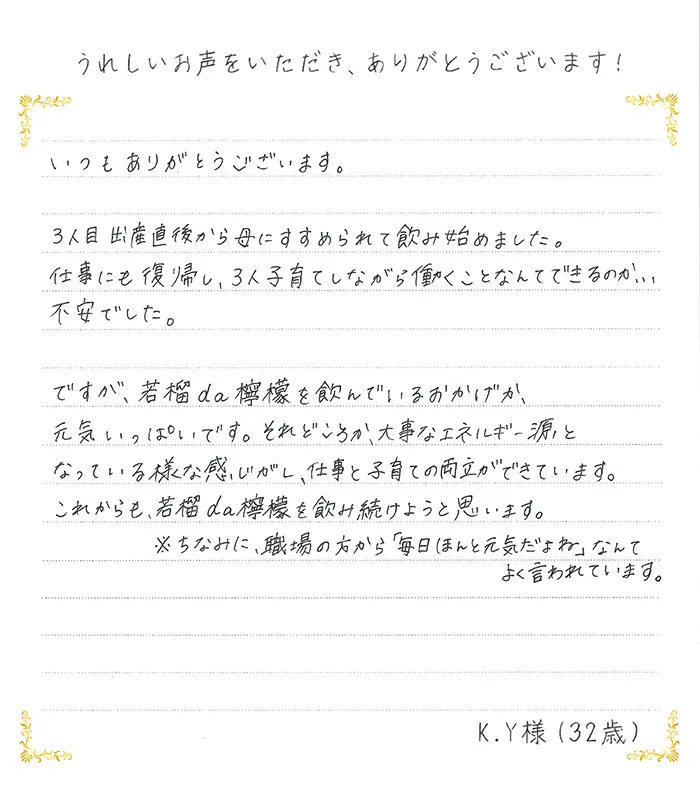 うれしいお声をいただき、ありがとうございます!
いつもありがとうございます。
3人目出産直後から母にすすめられて飲み始めました。
仕事にも復帰し、3人子育てしながら働くことなんてできるのか、、、
不安でした。
ですが、若榴da檸檬を飲んでいるおかげか、
元気いっぱいです。それどころか、大事なエネルギー源と
なっている様な感じがし、仕事と子育ての両立ができています。
これからも、若榴da檸檬を飲み続けようと思います。
※ちなみに、職場の方から「毎日ほんと元気だよね」なんて
よく言われています。
K.Y様(32歳)